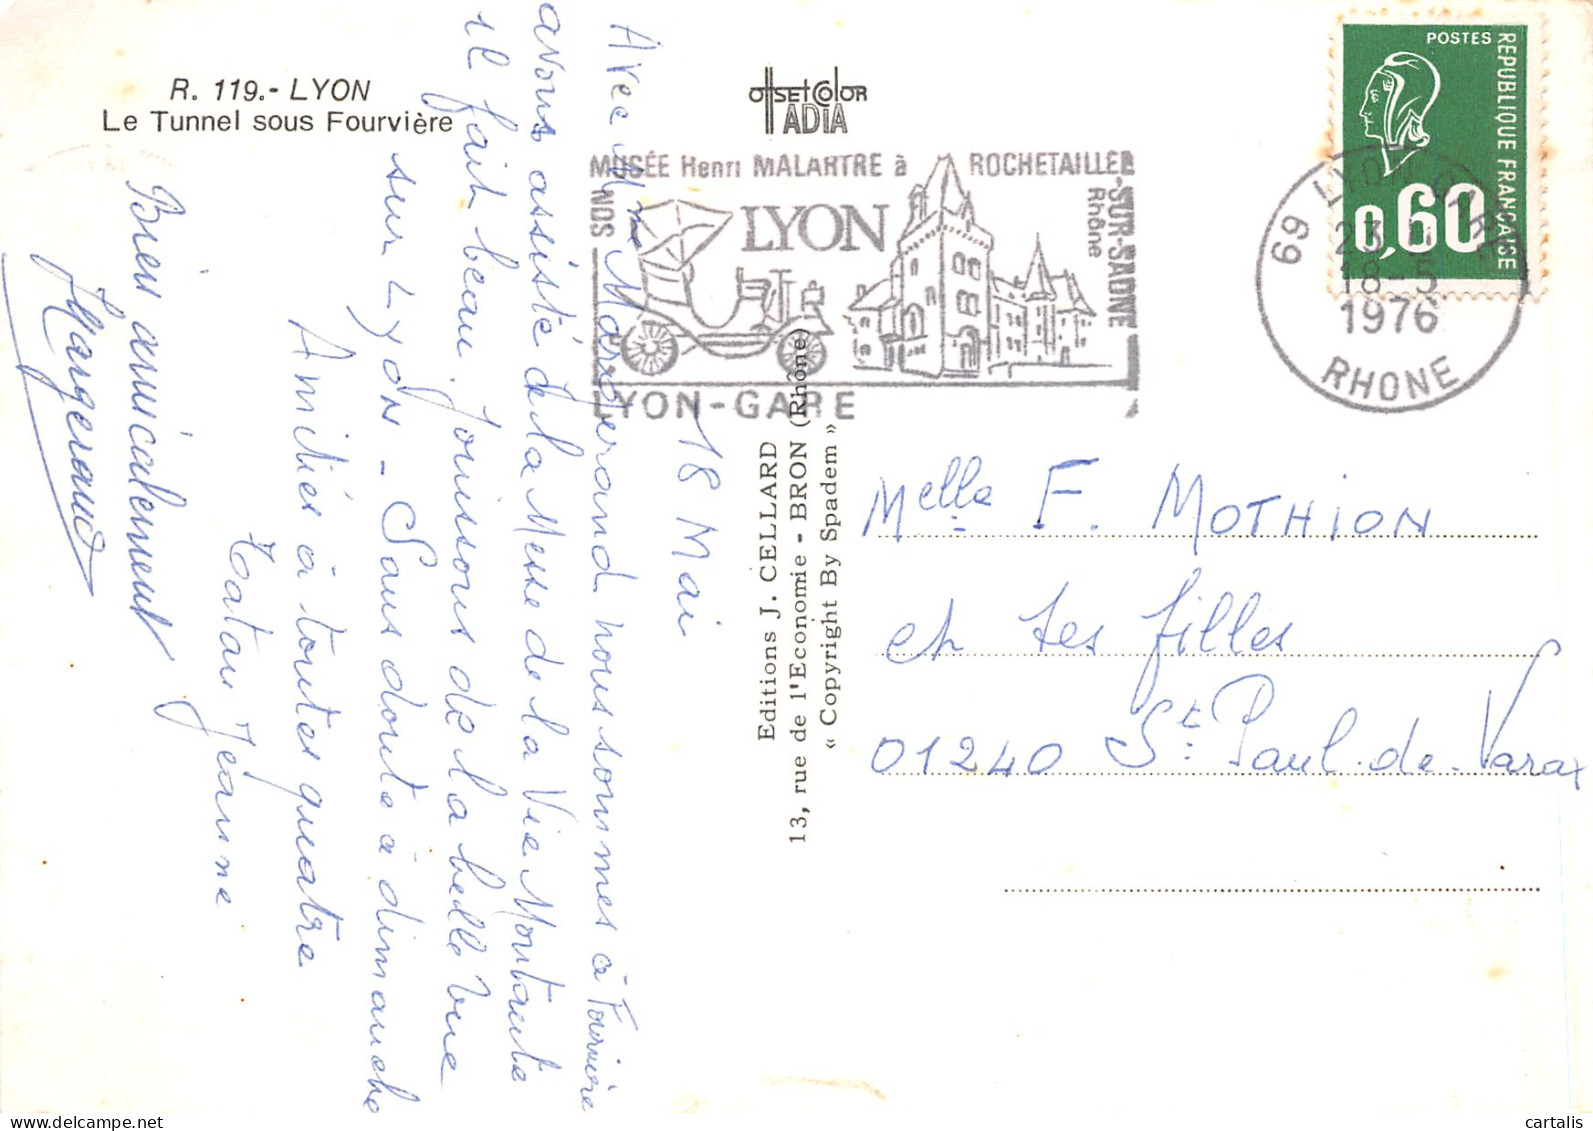 R. 119.- LYON
Le Tunnel sous Fourvière
OFFSET COLOR
ADIA
MUSÉE Henri MALARTRE à ROCHETAILLEE
-SUR-SAONE
Rhône
NOS
LYON
LYON-GARE
POSTES
REPUBLIQUE FRANCAISE
0,60
69 LYON GARE
18-5
1976
RHONE
18 Mai
Avec Mme Margerand nous sommes à Fourvière
avons assisté à la Messe de la Vie Montante
il fait beau. Jouissons de la belle vue
sur Lyon - Sans doute à dimanche
Amitiés à toutes quatre
Tatan Jeanne
Bien amicalement
Margerand
Editions J. CELLARD
13, rue de l'Economie - BRON (Rhône)
« Copyright By Spadem »
Melle F. MOTHION
et ses filles
01240 St. Paul-de-Varax
www.delcampe.net
cartalis